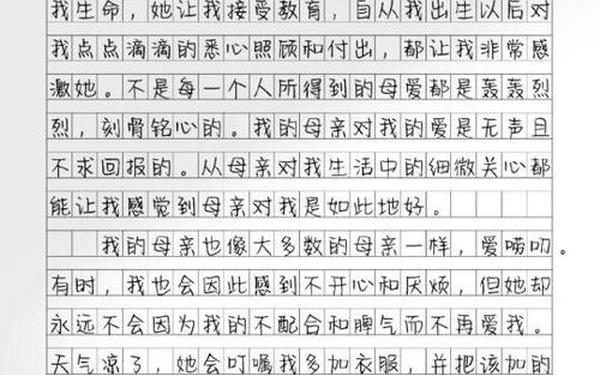 我生命，她让我接受教育，自从我出生以后对
我点点滴滴的悉心照顾和付出，都让我非常感
激她。不是每一个人所得到的母爱都是轰轰烈
烈，刻骨铭心的。我的母亲对我的爱是无声且
不求回报的。从母亲对我生活中的细微关心都
能让我感觉到母亲对我是如此地好。
我的母亲也像大多数的母亲一样，爱唠叨。
有时，我也会因此感到不开心和厌烦，但她却
永远不会因为我的不配合和脾气而不再爱我。
天气凉了，她会叮嘱我多加衣服，并把该加的